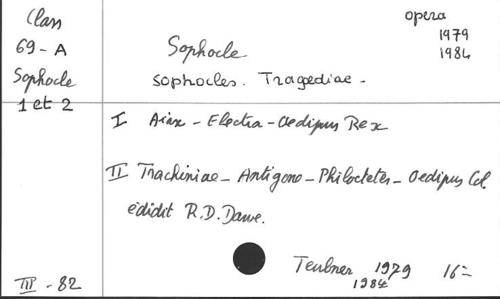 Class
69-A
Sophocle
1 et 2
opera
1979
1984
Sophocle
Sophocles. Tragediae -
I Aiax - Electra - Oedipus Rex
II Trachiniae - Antigone - Philoctetes - Oedipus Col.
edidit R.D. Dawe.
Teubner 1979 16=
1984
III - 82